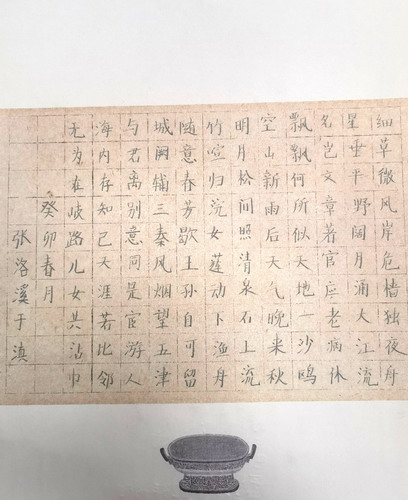 细草微风岸危樯独夜舟
星垂平野阔月涌大江流
名岂文章著官应老病休
飘飘何所似天地一沙鸥
空山新雨后天气晚来秋
明月松间照清泉石上流
竹喧归浣女莲动下渔舟
随意春芳歇王孙自可留
城阙辅三秦风烟望五津
与君离别意同是宦游人
海内存知己天涯若比邻
无为在岐路儿女共沾巾
癸卯春月
张洛溪于滇